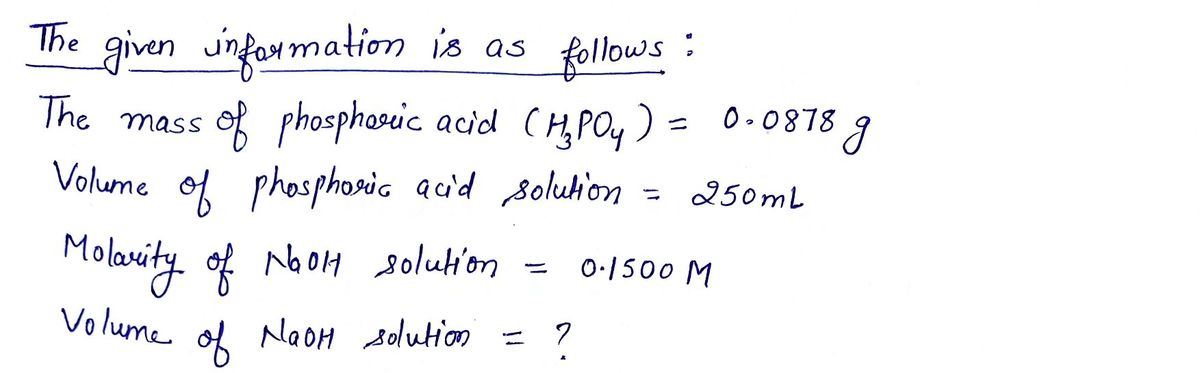 The given information is as follows :
The mass of phosphoric acid (H₃PO₄) = 0.0878 g
Volume of phosphoric acid solution = 250mL
Molarity of NaOH solution = 0.1500 M
Volume of NaOH solution = ?